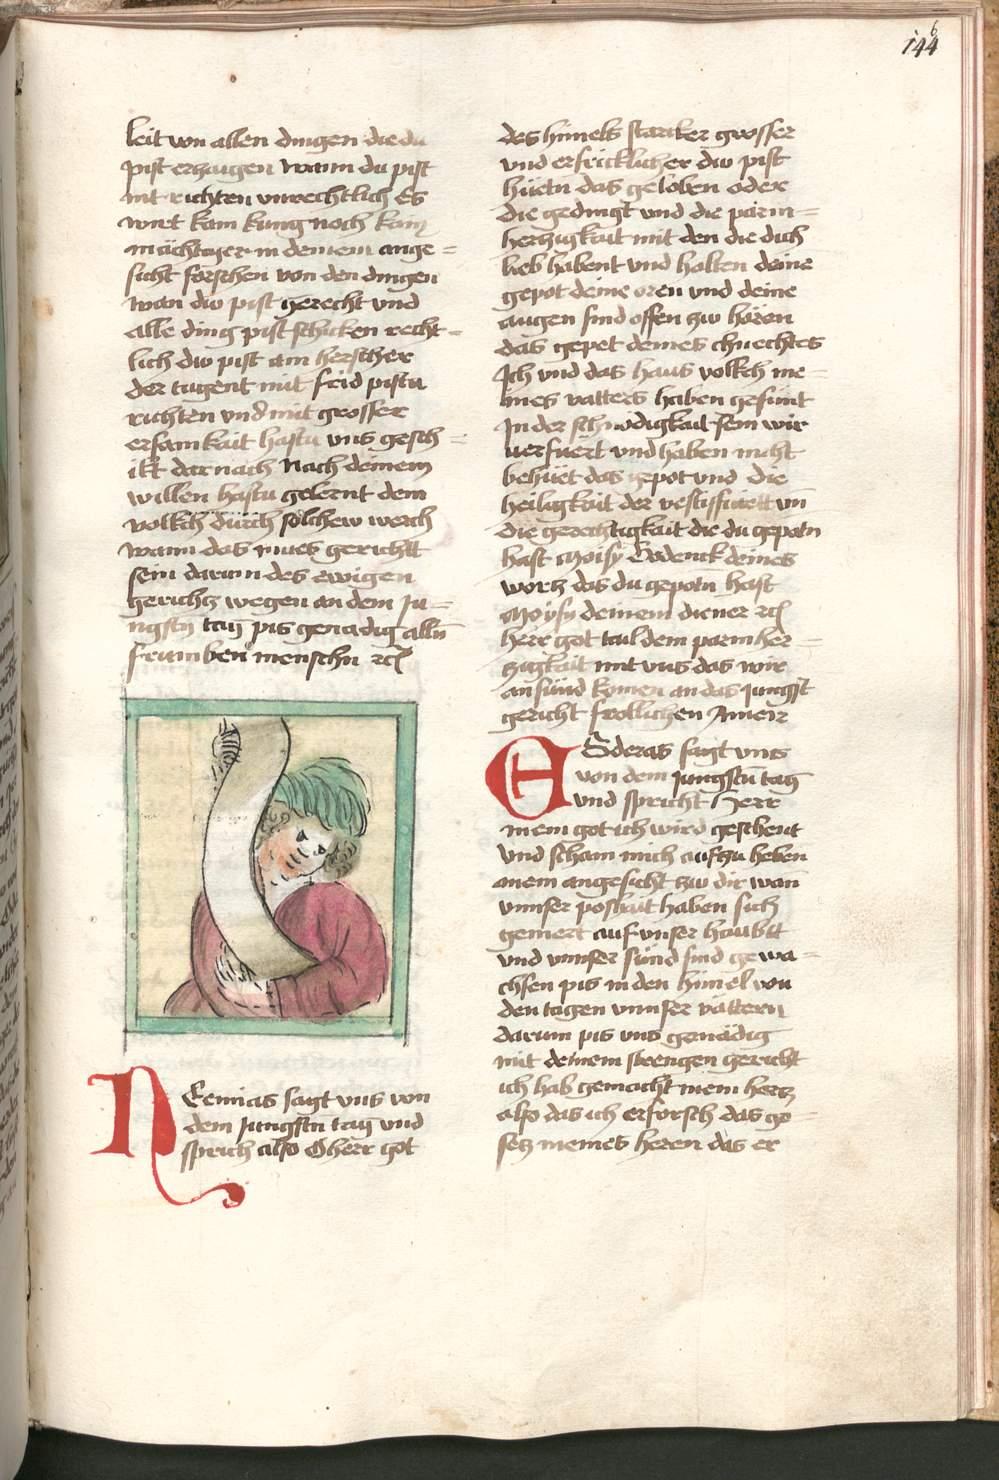 144
6
leit von allen dingen die du
pist erzaigen wann du pist
nit richten vnrechtlich Es
wirt kain kunig noch kain
mächtiger in deinem ange=
sicht forschen von den dingen
wan dw pist gerecht vnd
alle ding pist schicken recht=
lich dw pist ain herscher
der tugent mit frid pistu
richten vnd mit grosser
ersamkait hastu vns gesch=
ikt darnach Nach deinem
willen hastu gelernt dem
volkch durch solchew werch
wann das mues gerichtt
sein darum des ewigen
gerichtz wegen an dem Ju=
ngstn tag pis genadig alln
frumben menschn zc
Nemias sagt vns von
dem Jungstn tag vnd
sprich also O herr got
des himels starker grosser
vnd erscricklicher dw pist
hüetn das geloben oder
die gedingt vnd die parm=
herzigkait mit den die dich
lieb habent vnd halten deine
gepot deine oren vnd deine
augen sind offen zw hören
das gepet deines chnechtes
Ich vnd das haus volkch me=
ines vatters haben gesünt
In der schnödigkait sein wir
verfuert vnd haben nicht
behüet das gepot vnd die
heiligkait der vn
die gerechtigkait die du gepotn
hast Moisy Gedenck deines
wortz das du gepotn hast
Moysy deinem diener zc
herr got tail dem parmher=
zigkait mit vns das wir
an sünd komen an das Jungst
gericht frolichen Amen
ESderas sagt vns
von dem Jungstn tag
vnd spricht Herr
mein got ich wird geschent
vnd scham mich aufzu heben
mein angesicht zw dir wan
vnnser poshait haben sich
gemert auf vnser haubtt
vnd vnnser sünd sind gewa=
chsen pis in den himel von
den tagen vnnser vättern
darum pis vns genädig
mit deinem strengen gericht
ich hab gemacht mein hertz
also das ich erforsch das ge=
setz meines heren das er